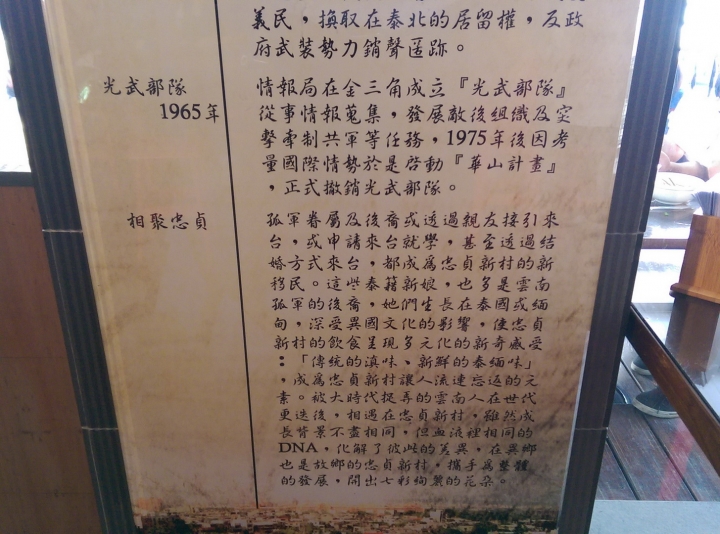 義民，換取在泰北的居留權，反政
府武裝勢力銷聲匿跡。
光武部隊
1965年
情報局在金三角成立『光武部隊』
從事情報蒐集，發展敵後組織及空
擊牽制共軍等任務，1975年後因考
量國際情勢於是啓動『華山計畫』
，正式撤銷光武部隊。
相聚忠貞
孤軍眷屬及後裔或透過親友接引來
台，或申請來台就學，甚至透過結
婚方式來台，都成爲忠貞新村的新
移民。這些泰籍新娘，也多是雲南
孤軍的後裔，她們生長在泰國或緬
甸，深受異國文化的影響，使忠貞
新村的飲食呈現多元化的新奇感受
：「傳統的滇味、新鮮的泰緬味」
，成爲忠貞新村讓人流連忘返的元
素。被大時代捉弄的雲南人在世代
更迭後，相遇在忠貞新村，雖然成
長背景不盡相同，但血液裡相同的
DNA，化解了彼此的差異，在異鄉
也是故鄉的忠貞新村，攜手爲整體
的發展，開出七彩絢爛的花朵。